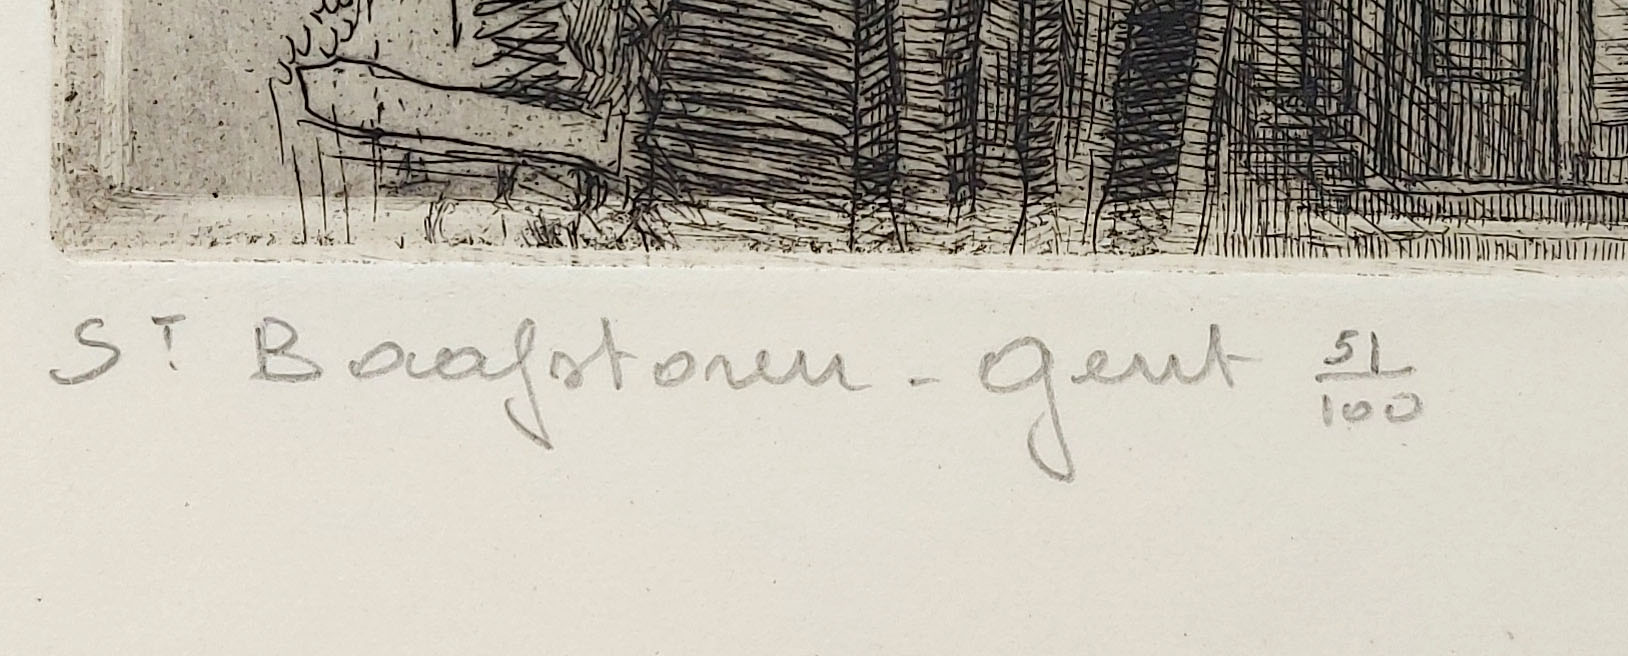 ST Baafstoren - Gent 51/100